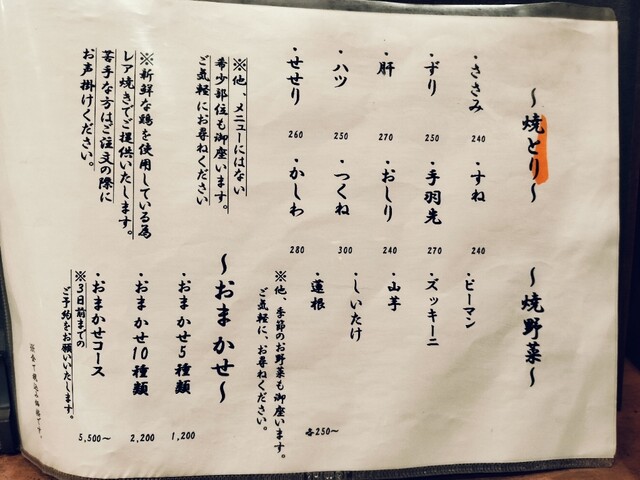 ～焼とり～
・ささみ 240
・ずり 250
・肝 270
・ハツ 250
・せせり 260
・すね 240
・手羽先 270
・おしり 240
・つくね 300
・かしわ 280
※他、メニューにはない
希少部位も御座います。
ご気軽にお尋ねください
※新鮮な鶏を使用している為
レア焼きでご提供いたします。
苦手な方はご注文の際に
お声掛けください。
～焼野菜～
・ピーマン
・ズッキーニ
・山芋
・しいたけ
・蓮根
各250～
※他、季節のお野菜も御座います。
ご気軽に、お尋ねください。
～おまかせ～
・おまかせ5種類 1,200
・おまかせ10種類 2,200
・おまかせコース 5,500～
※3日前までの
ご予約をお願いいたします。
※全て税込み価格です。